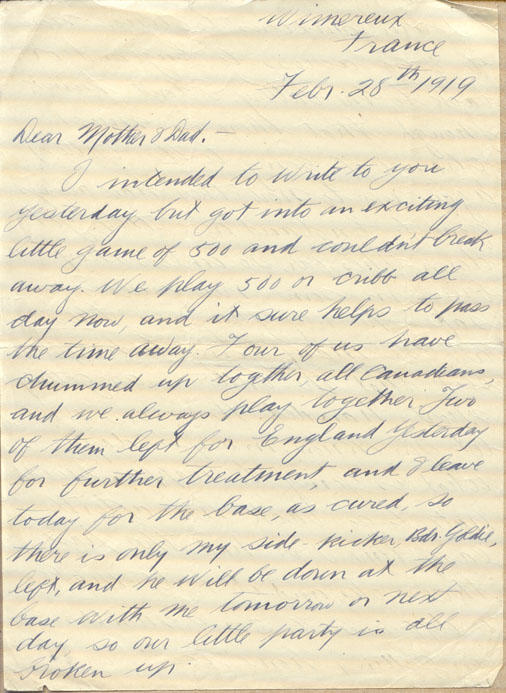 Wimereux
France
Febr. 28th 1919
Dear Mother & Dad. —
I intended to write to you
yesterday but got into an exciting
little game of 500 and couldn't break
away. We play 500 or cribb all
day now, and it sure helps to pass
the time away. Four of us have
chummed up togther, all Canadians,
and we always play together. Two
of them left for England yesterday
for further treatment, and I leave
today for the base, as cured, so
there is only my side-kicker, Bdr. Goldie,
left, and he will be down at the
base with me tomorrow or next
day, so our little party is all
broken up.